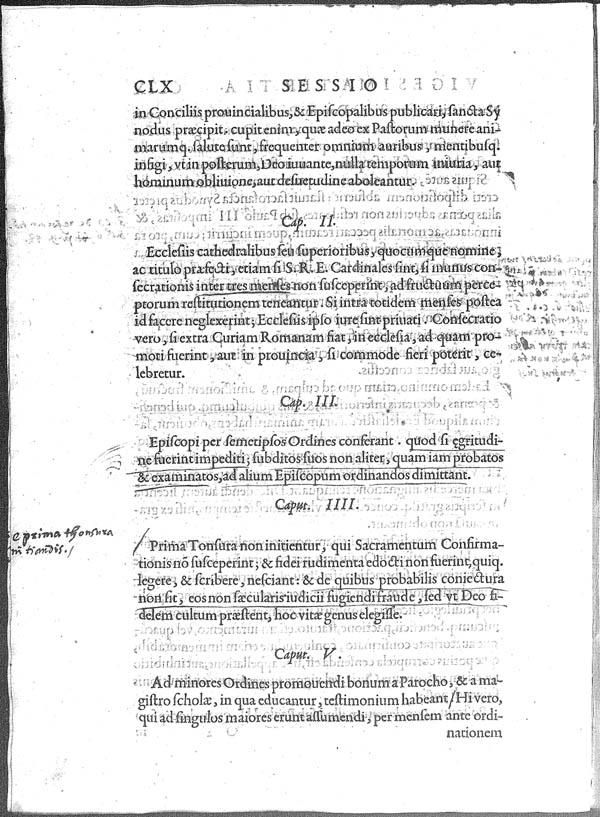 CLX SESSIO
in Conciliis prouincialibus, & Episcopalibus publicari, sancta Sy
nodus præcipit. cupit enim, quæ adeo ex Pastorum munere ani-
marumq. salute sunt, frequenter omnium auribus, mentibusq.
infigi, vt in posterum, Deo iuuante, nulla temporum iniuria, aut
hominum obliuione, aut desuetudine aboleantur.
Cap. II.
Ecclesiis cathedralibus seu superioribus, quocumque nomine,
ac titulo præfecti, etiam si S. R. E. Cardinales sint, si munus con-
secrationis inter tres menses non susceperint, ad fructuum perce-
ptorum restitutionem teneantur. Si intra totidem menses postea
id facere neglexerint; Ecclesiis ipso iure sint priuati. Consecratio
vero, si extra Curiam Romanam fiat, in ecclesia, ad quam pro-
moti fuerint, aut in prouincia, si commode fieri poterit, ce-
lebretur.
Cap. III.
Episcopi per semetipsos Ordines conferant. quod si ęgritudi-
ne fuerint impediti; subditos suos non aliter, quam iam probatos
& examinatos, ad alium Episcopum ordinandos dimittant.
Caput. IIII.
e prima thonsura
Prima Tonsura non initientur, qui Sacramentum Confirma-
tionis nō susceperint; & fidei rudimenta edocti non fuerint, quiq.
legere, & scribere, nesciant: & de quibus probabilis coniectura
non sit, eos non sæcularis iudicii fugiendi fraude, sed vt Deo fi-
delem cultum præstent, hoc vitæ genus elegisse.
Caput. V.
Ad minores Ordines promouendi bonum a Parocho, & a ma-
gistro scholæ, in qua educantur, testimonium habeant / Hi vero,
qui ad singulos maiores erunt assumendi, per mensem ante ordi-
nationem